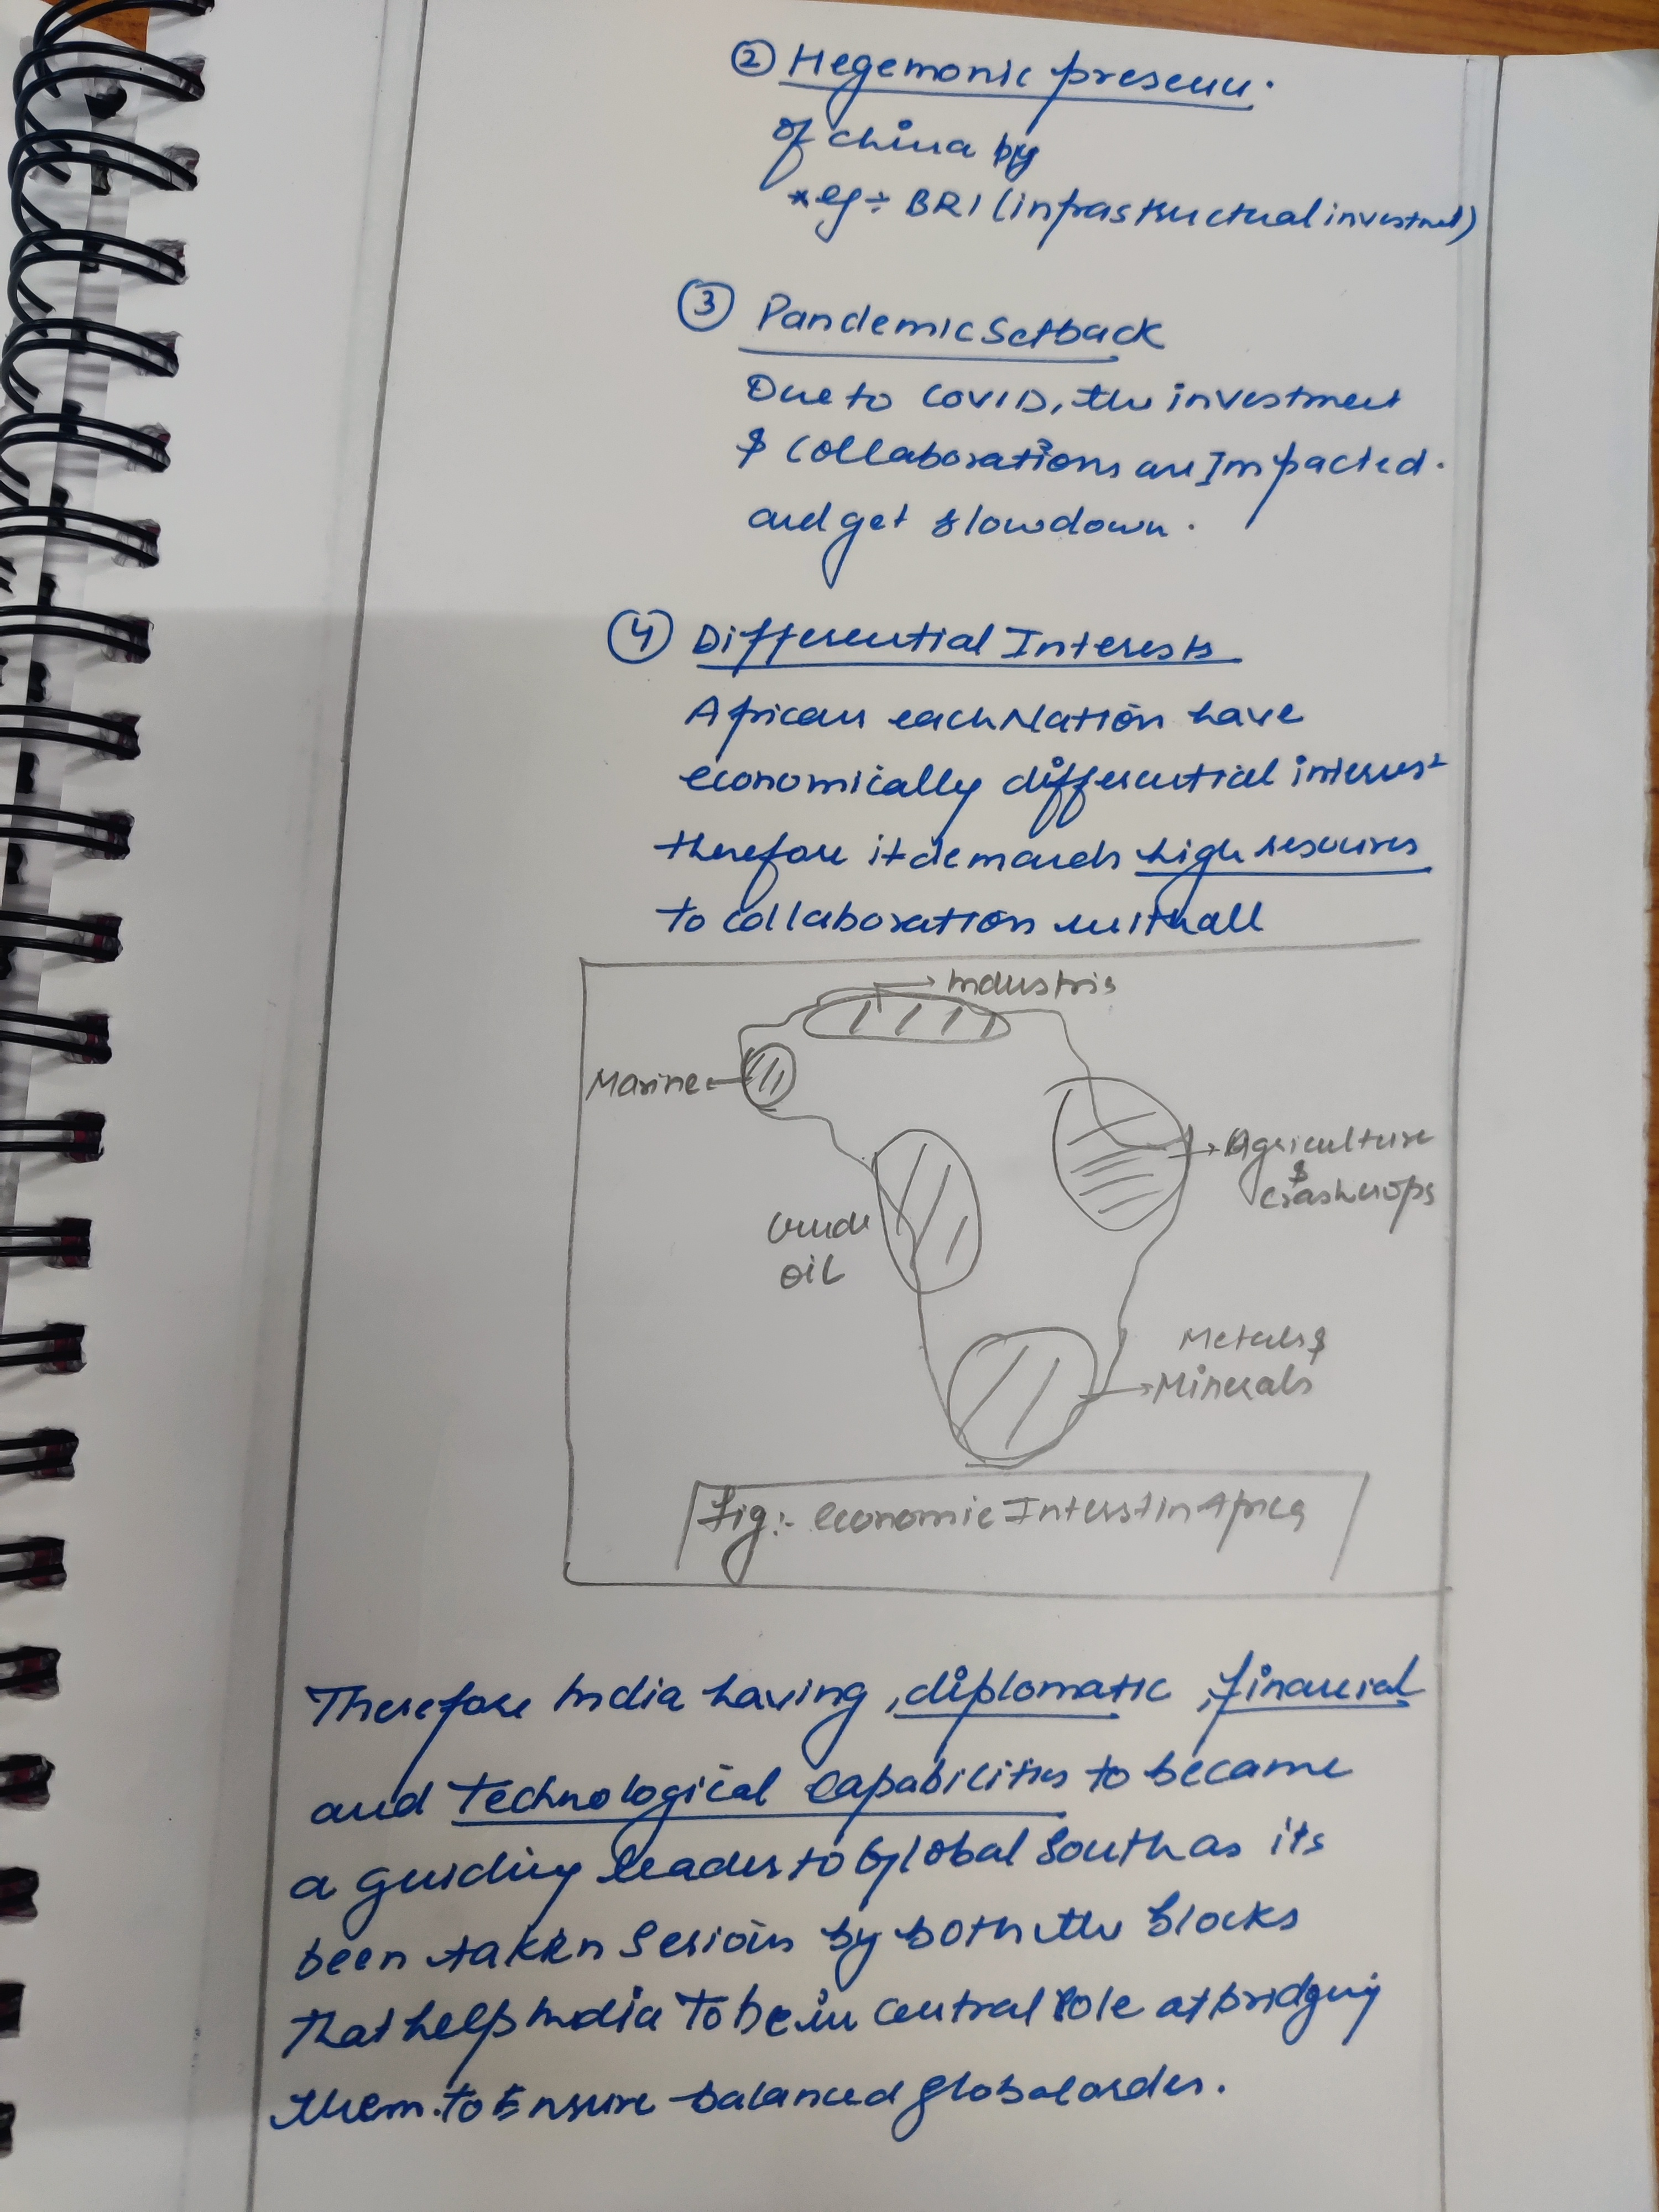 ② Hegemonic presenc.
of China by
* eg ÷ BRI (infrastructual investmet)
③ Pandemic Setback
Due to COVID, the investment
& Collaborations are Impacted.
and get slowdown.
④ Differential Interests
African each Nation have
economically differential interest
therefore it demands high resources
to collaboration with all
Industris
Marine
Agriculture
&
Cash crops
Crude
oil
Metals &
Minerals
Fig:- economic Interst in Africa
Therefore India having, diplomatic, financial
and Technological Capabilities to became
a guiding leader to Global South as its
been takken Serious by both the blocks
that help India To be in central role at bridging
them. to Ensure balanced global order.